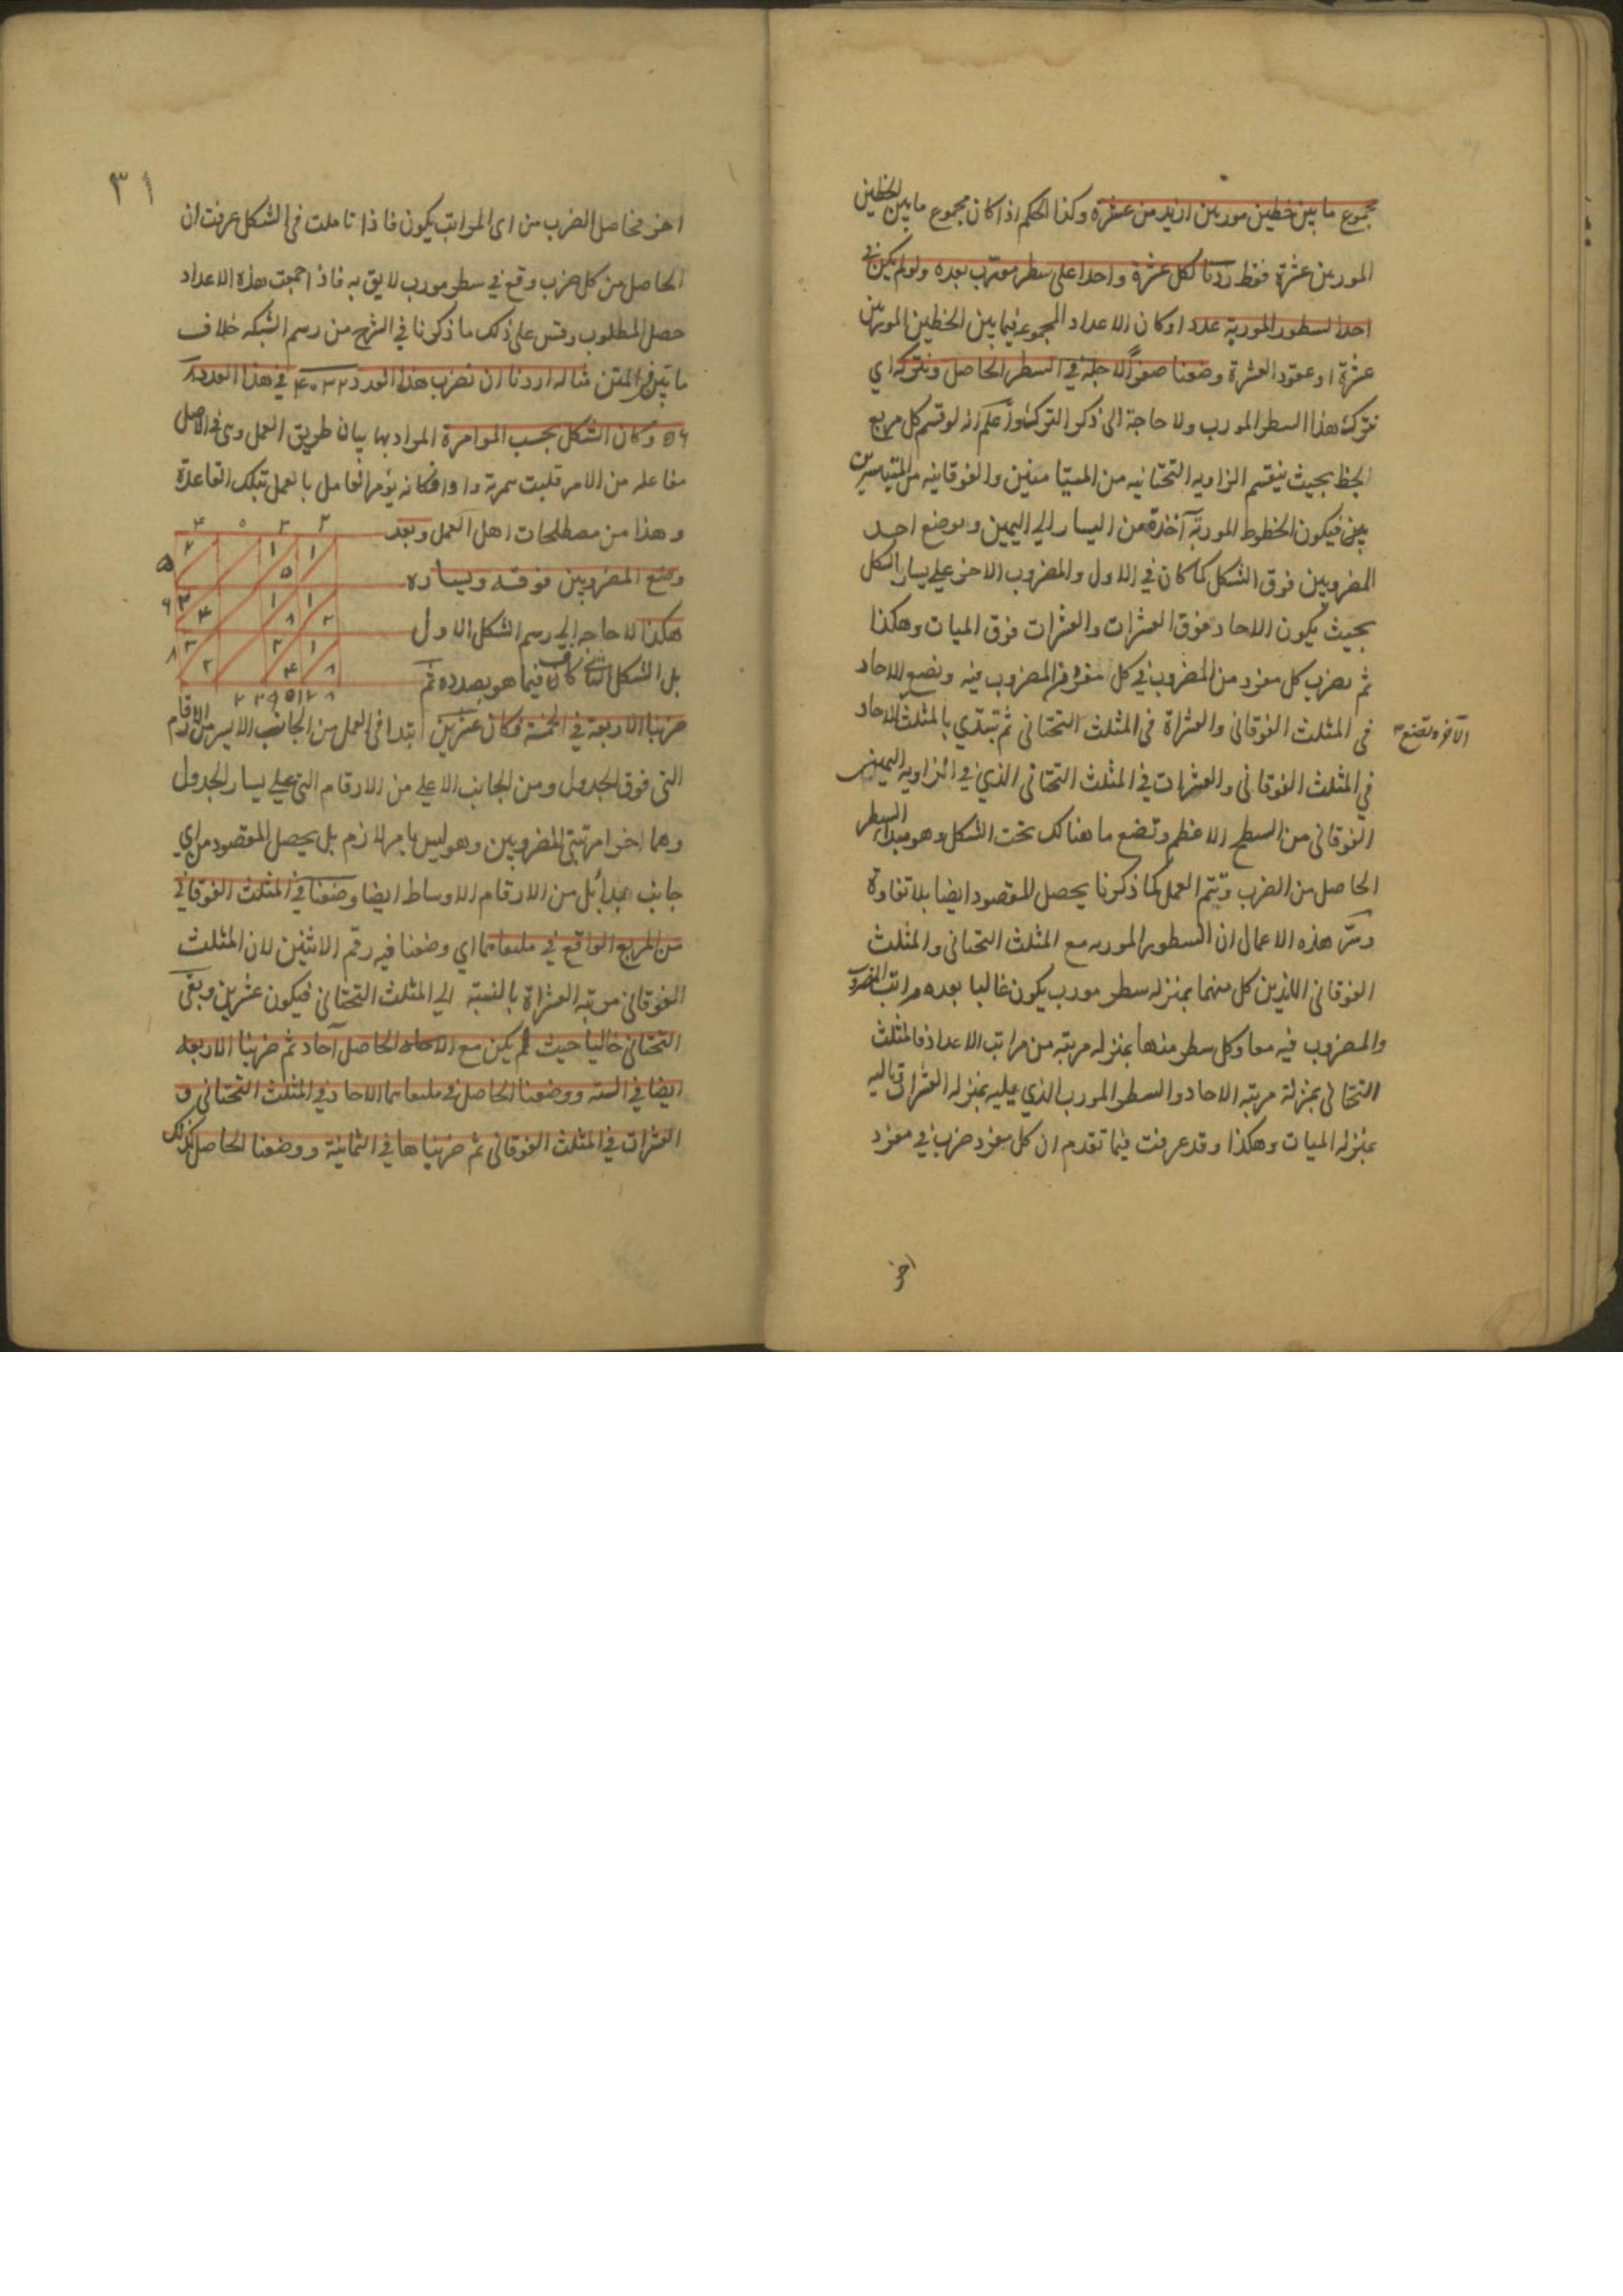 مجموع ما بين خطين موربين ازيد من عشرة وكذا الحكم اذا كان مجموع ما بين الخطين
الموربين عشرة فقط زدنا لكل عشرة واحدا على سطر مورب بعده ولو لم يكن في
احد السطور الموربة عدد او كان الاعداد المجموعه فيما بين الخطين الموربين
عشرة او عقود العشرة وضعنا صفرًا لاجله في السطر الحاصل ونتركه اي
نترك هذا السطر المورب ولا حاجة الى ذكر الترك واعلم انه لو قسم كل مربع
بخط بحيث ينقسم الزاويه التحتانيه من المتيامنين والفوقانيه من المتياسرين
فيكون الخطوط الموربة آخذة من اليسار الي اليمين ويوضع احد
المضروبين فوق الشكل كما كان في الاول والمضروب الاخر علي يسار الشكل
بحيث يكون الاحاد فوق العشرات والعشرات فوق الميات وهكذا
ثم نضرب كل مفرد من المضروب في كل مفرد من المضروب فيه ونضع الاحاد
في المثلث الفوقاني والعشراة في المثلث التحتاني ثم تبتدي بالمثلث
الآخر ونضع
في المثلث الفوقاني والعشرات في المثلث التحتاني الذي في الزاويه اليمنى
الفوقاني من السطح الاعظم وتضع ما هنالك تحت الشكل وهو مبدأ السطر
الحاصل من الضرب وتتم العمل كما ذكرنا يحصل المقصود ايضا بلا تفاوة
وسرّ هذه الاعمال ان السطور الموربه مع المثلث التحتاني والمثلث
الفوقاني اللذين كل منهما بمنزله سطر مورب يكون غالبا بعده مراتب المضروب
والمضروب فيه معا وكل سطر منها بمنزله مرتبة من مراتب الاعداد فالمثلث
التحتاني بمنزلة مرتبه الاحاد والسطر المورب الذي يليه بمنزله العشرات
بمنزله الميات وهكذا وقد عرفت فيما تقدم ان كل مفرد ضرب في مفرد
اخر
٣١
اخر فحاصل الضرب من اى المراتب يكون فاذا تاملت في الشكل عرفت ان
الحاصل من كل ضرب وقع في سطر مورب لايق به فاذا جمعت هذه الاعداد
حصل المطلوب وقس على ذلك ما ذكرنا في الشرح من رسم الشبكه خلاف
ما تبين في المتن مثاله اردنا ان نضرب هذا العدد ٤٠٣٢ في هذا العدد ٨
٥٦ وكان الشكل بحسب الموامرة المراد بها بيان طريق العمل وهى في الاصل
مفاعله من الامر قلبت همزته واوا فكانه يؤمر العامل بالعمل بتلك القاعدة
وهذا من مصطلحات اهل العمل وبعد
وضع المضروبين فوقه ويساره
هكذا لا حاجه الي رسم الشكل الاول
بل الشكل الثاني كاف فيما هو بصدده ثم
٤ ٥ ٣ ٢
٥ ٢ ١ ٥ ١
٦ ٢ ٤ ١ ٨ ١ ٢
٨ ٣ ٢ ٢ ٤ ١ ٨
٢ ٣ ٩ ٥ ١ ٢ ٨
ضربنا الاربعة في الخمسة فكان عشرين ابتدا في العمل من الجانب الايسر من الارقام
التي فوق الجدول ومن الجانب الاعلي من الارقام التي علي يسار الجدول
وهما اخرا مرتبتي المضروبين وهو ليس بامر لازم بل يحصل المقصود من اي
جانب بدا بل من الارقام الاوساط ايضا وضعنا في المثلث الفوقاني
من المربع الواقع في ملتقاهما اي وضعنا فيه رقم الاثنين لان المثلث
الفوقاني مرتبه العشراة بالنسبة الي المثلث التحتاني فيكون عشرين وبقى
التحتاني خاليا حيث لم يكن مع الحاصل آحاد ثم ضربنا الاربعه
ايضا في الستة ووضعنا الحاصل في ملتقاهما الاحاد في المثلث التحتاني و
العشرات في المثلث الفوقاني ثم ضربناها في الثمانية ووضعنا الحاصل كذلك